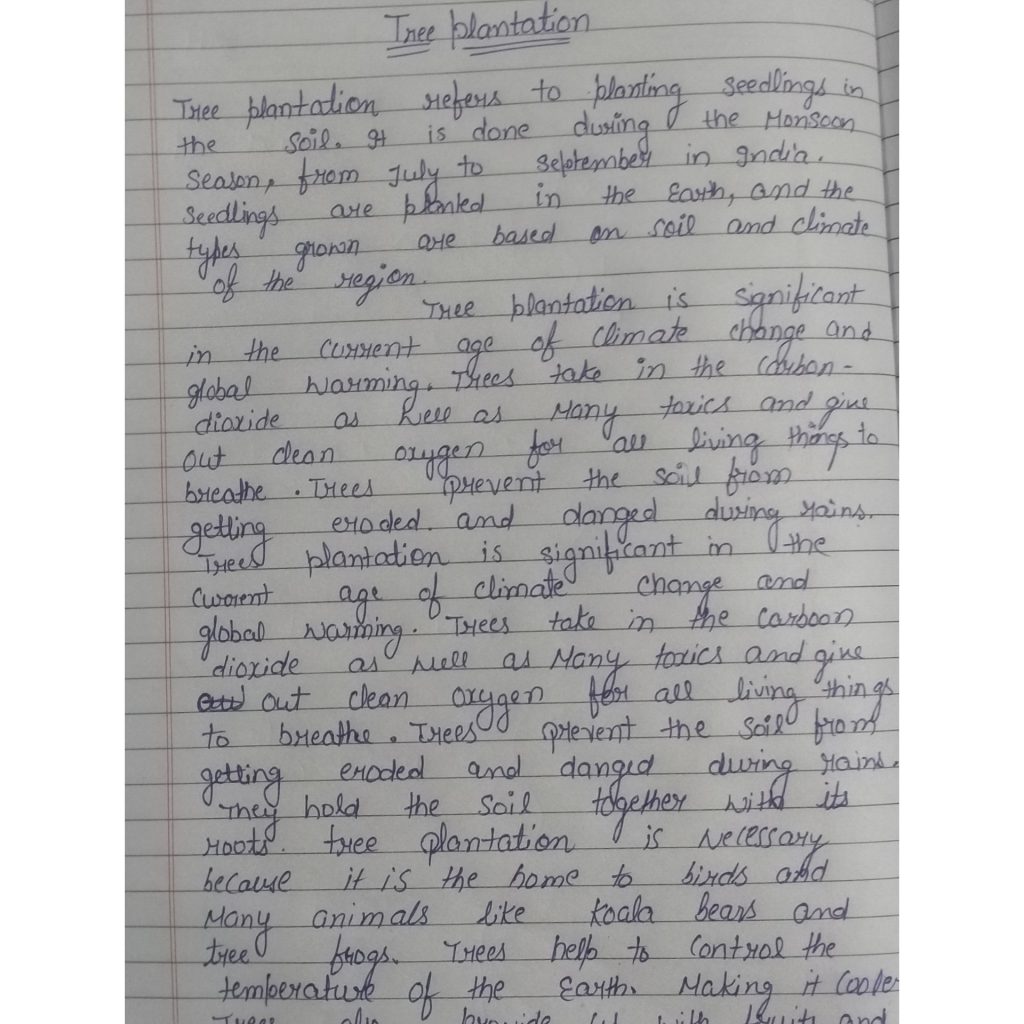 Tree plantation
Tree plantation refers to planting seedlings in
the soil. It is done during the Monsoon
Season, from July to September in India.
Seedlings are planted in the Earth, and the
types grown are based on soil and climate
of the region.
Tree plantation is significant
in the current age of climate change and
global warming. Trees take in the carbon-
dioxide as well as Many toxics and give
out clean oxygen for all living things to
breathe. Trees prevent the soil from
getting eroded. and danged during rains.
Trees plantation is significant in the
current age of climate change and
global warming. Trees take in the carboon
dioxide as well as Many toxics and give
out clean oxygen for all living things
to breathe. Trees prevent the soil from
getting eroded and danged during rains.
They hold the soil together with its
roots. tree plantation is necessary
because it is the home to birds and
Many animals like koala bears and
tree frogs. Trees help to control the
temperature of the Earth. Making it Cooler
Trees also provide us with fruits and